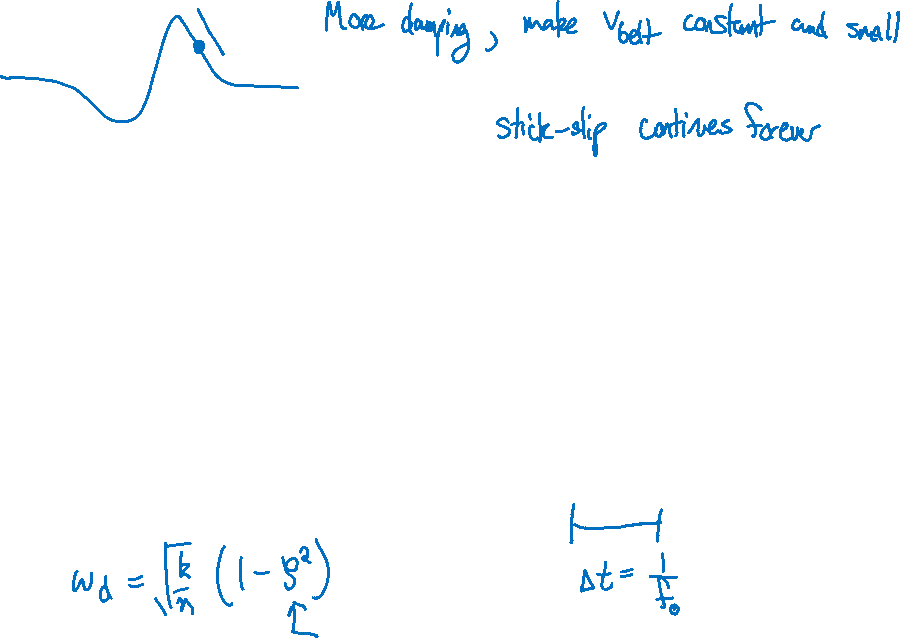 More damping, make v_belt constant and small
stick-slip continues forever
ω_d = √(k/m) (1 - ζ²)
Δt = 1/f₀